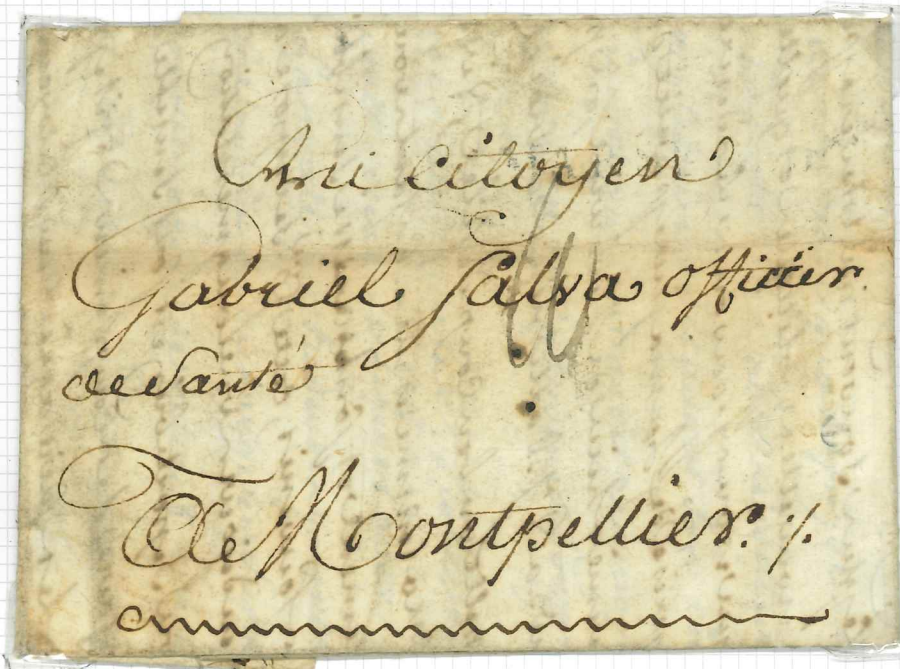 Citoyen
Gabriel Salva officier
de Santé
De Montpellier. ./.